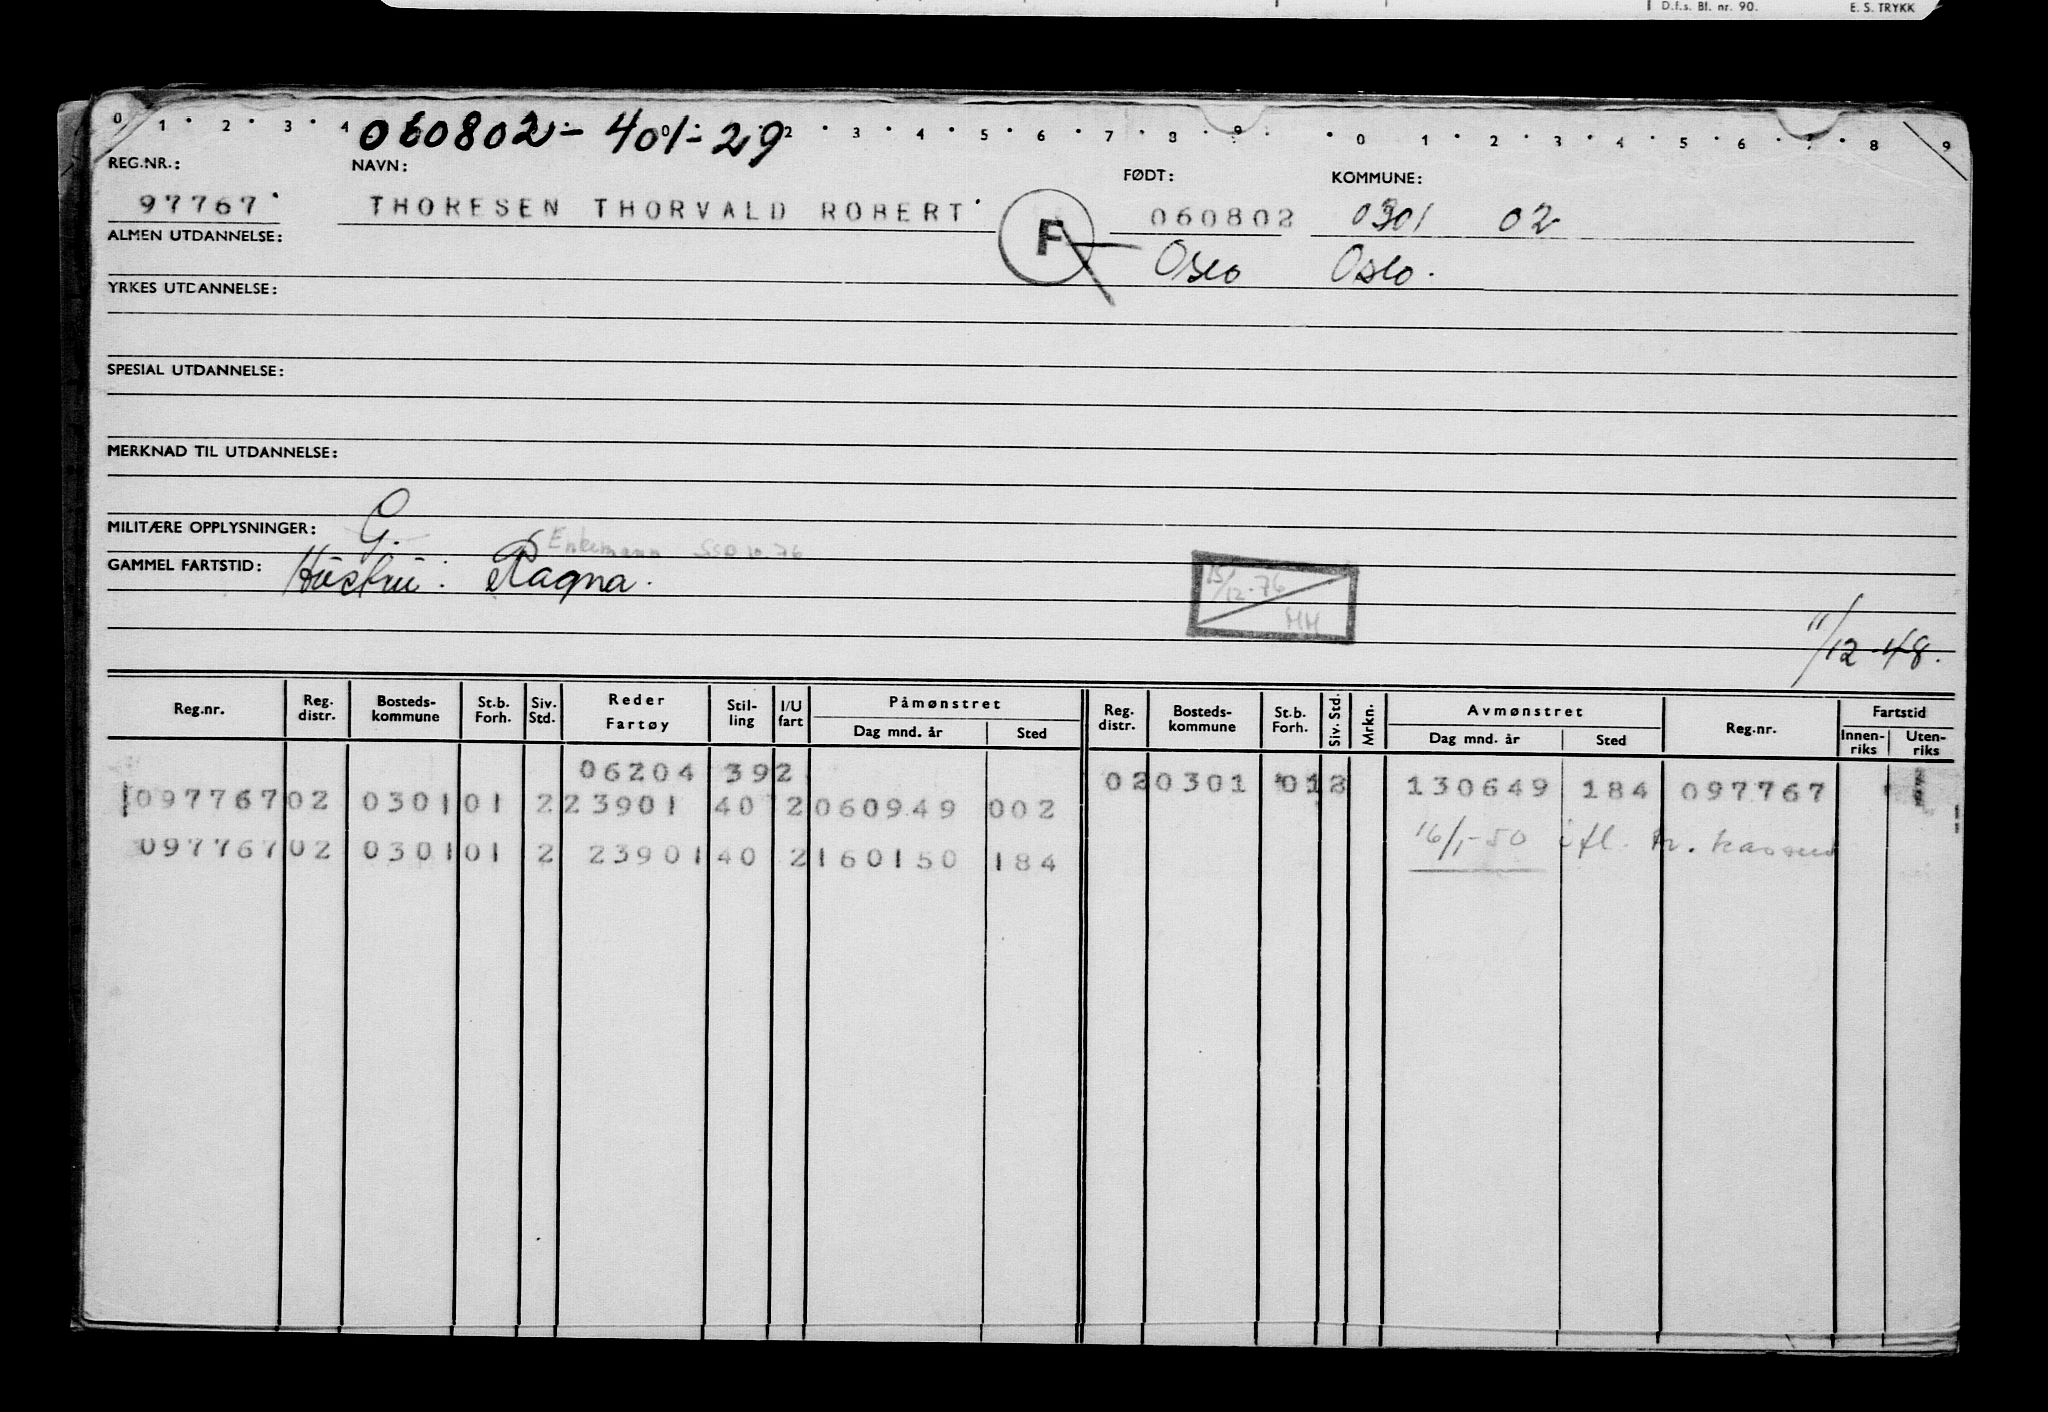 D.f.s. Bl. nr. 90. E. S. TRYKK
0 1 2 3 4 060802 - 401 - 29 2 3 4 5 6 7 8 9 0 1 2 3 4 5 6 7 8 9
REG.NR.: NAVN: FØDT: KOMMUNE:
97767 THORESEN THORVALD ROBERT F 060802 0301 02
ALMEN UTDANNELSE: Oslo Oslo.
YRKES UTDANNELSE:
SPESIAL UTDANNELSE:
MERKNAD TIL UTDANNELSE:
MILITÆRE OPPLYSNINGER: G.
Enkemann
GAMMEL FARTSTID: Hustru: Ragna.
15/12-76
HH
11/12-48.
Reg.nr. Reg. distr. Bosteds-kommune St.b. Forh. Siv. Std. Reder Fartøy Stil-ling I/U fart Påmønstret Dag mnd. år Sted Reg. distr. Bosteds-kommune St.b. Forh. Siv. Std. Mrkn. Avmønstret Dag mnd. år Sted Reg.nr. Fartstid Innen-riks Uten-riks
06204 392 02 0301 01 2 130649 184 097767
097767 02 0301 01 2 23901 40 2 060949 002
16/1-50 ifl.
097767 02 0301 01 2 23901 40 2 160150 184